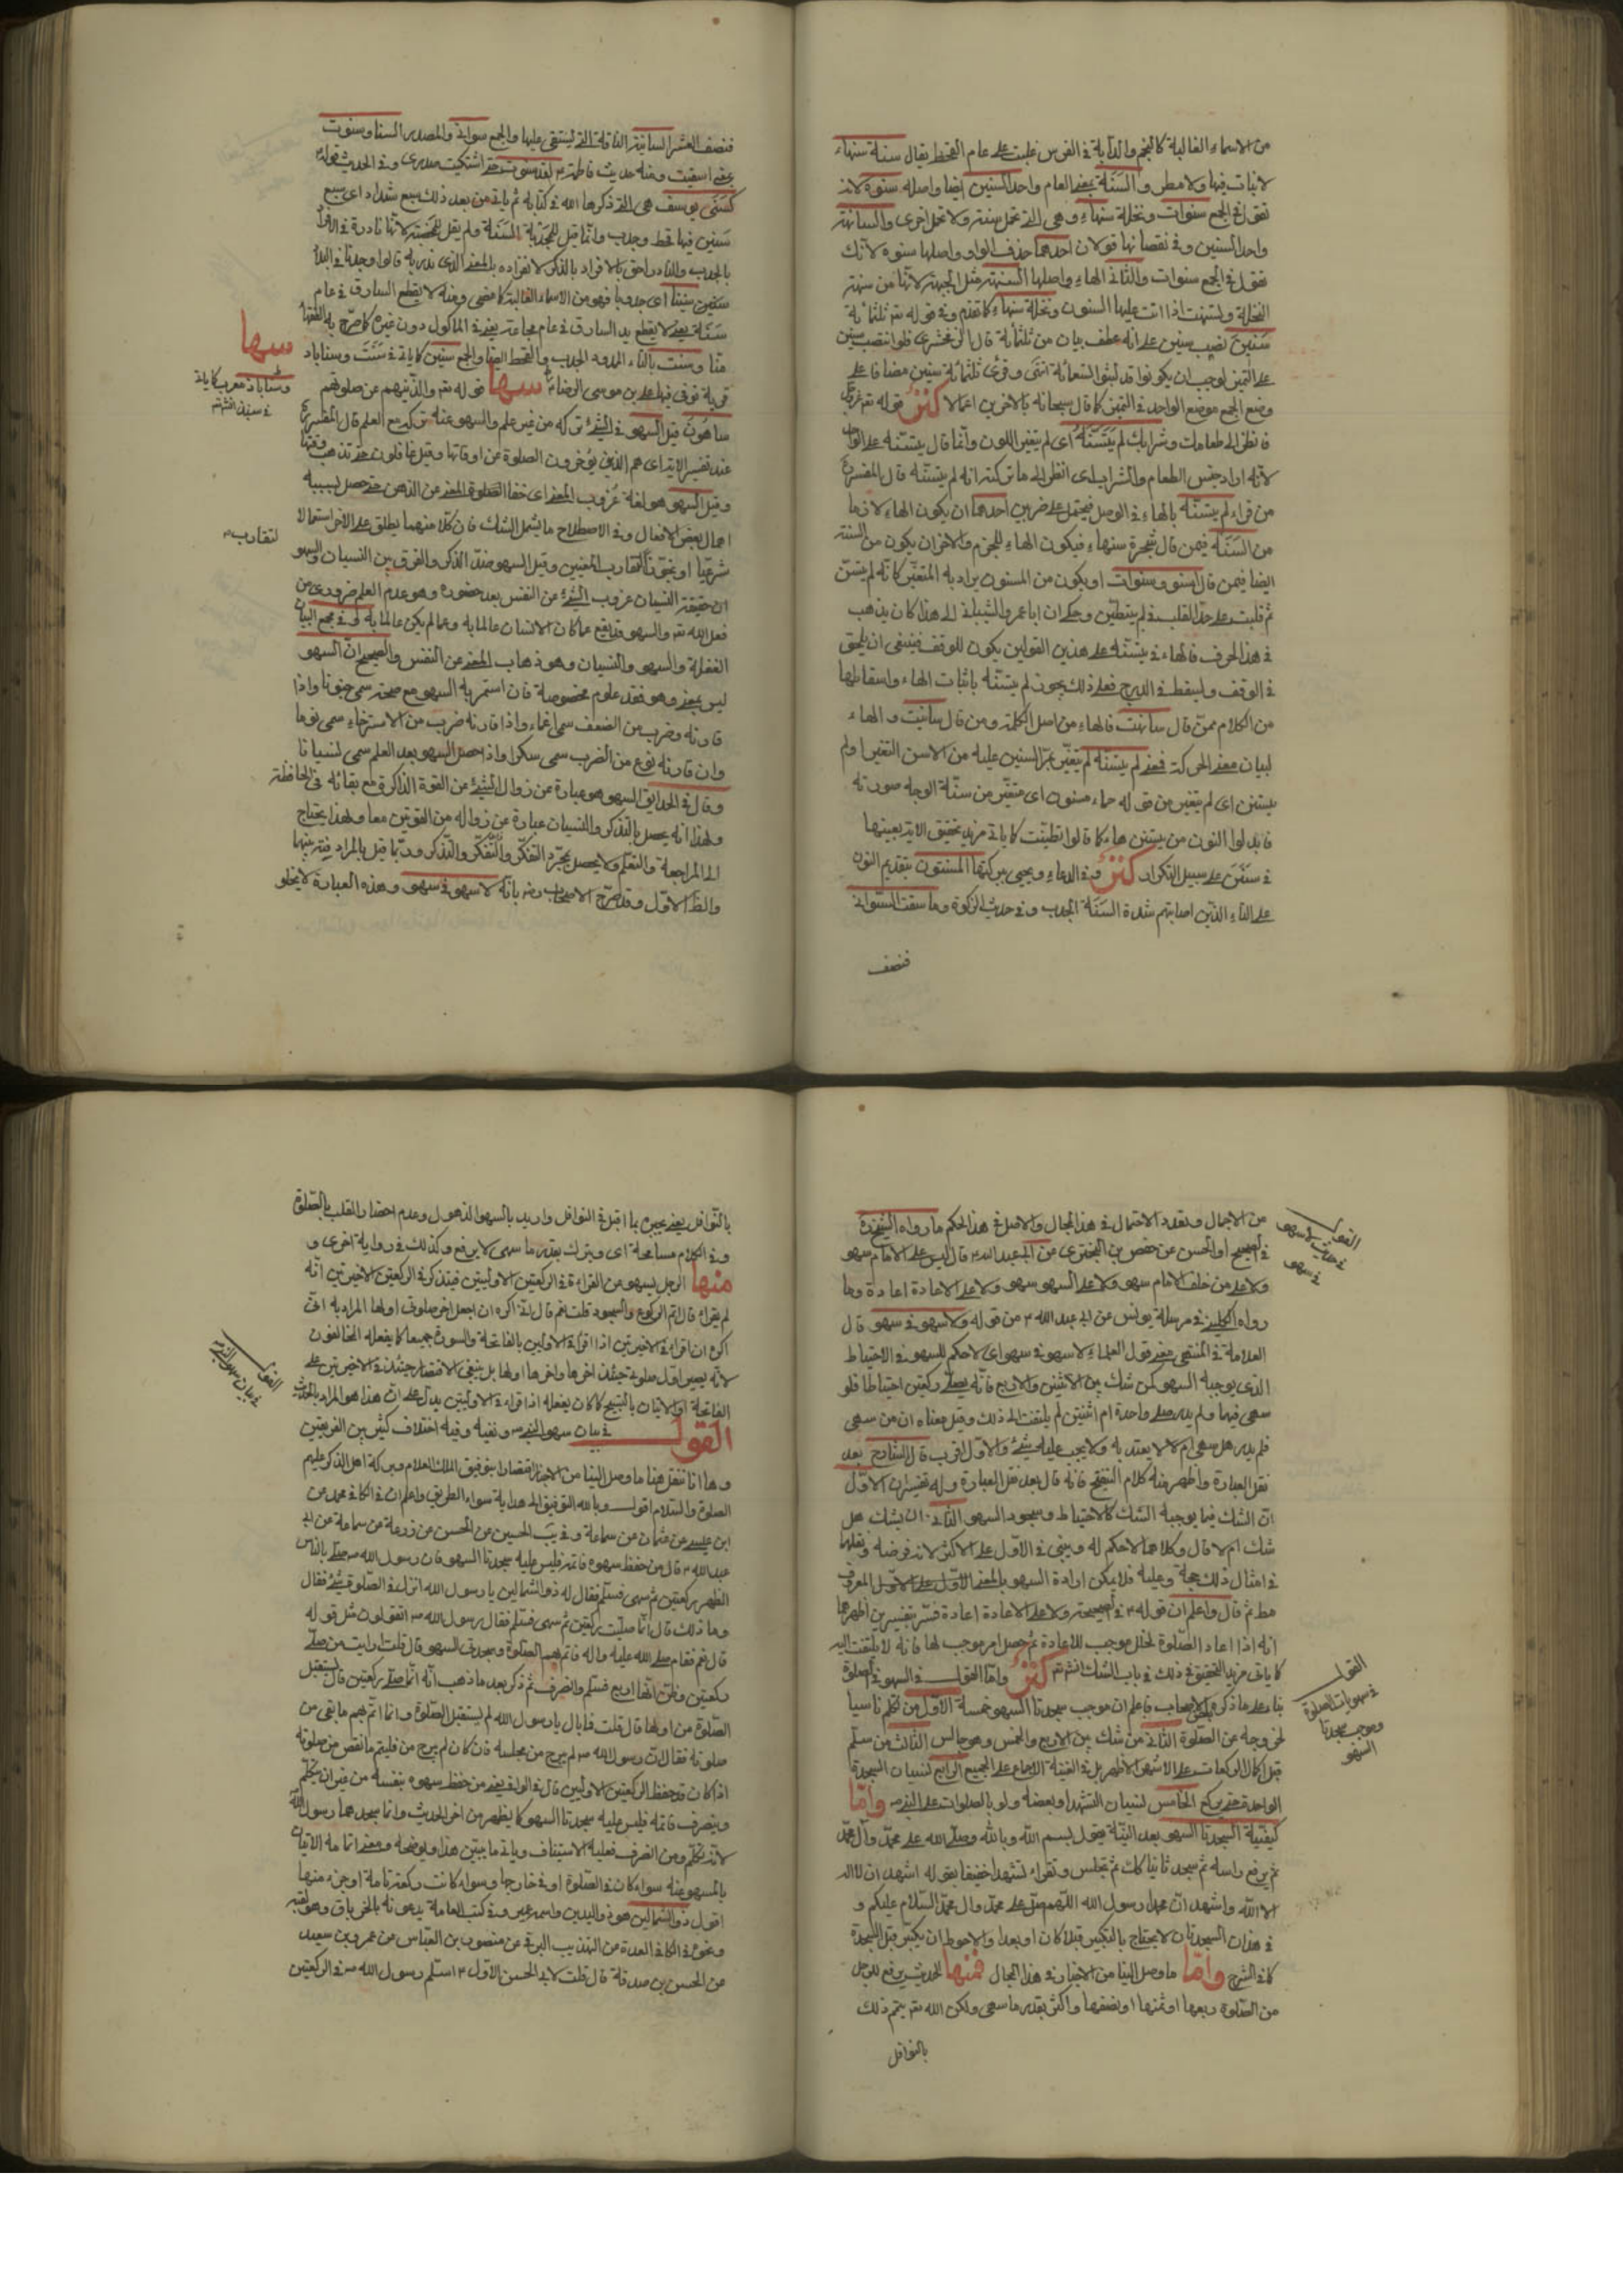 من الاسماء الغالبة كالنجم والدآبة في الفرس غلبت على عام القحط يقال سنة سنهاء
لا نبات فيها ولا مطر والسَنَة بمعنى العام واحد السنين ايضا واصله سنوة لانك
تقول في الجمع سنوات ونخلة سنهاء وهي التي تحمل سنة ولا تحمل اخرى والسانهة
واحد السنين وفي نقصانها قولان احدهما حذف الواو واصلها سنوة لانك
تقول في الجمع سنوات والثاني الهاء واصلها السنهة مثل الجبهة لانها من سنهت
النخلة وتسنهت اذا اتت عليها السنون ونخلة سنهاء كما تقدم وفي قوله تعم ثلثمائة
سنين نصب سنين على انه عطف بيان من ثلثمائة قال الزمخشري فلو انتصب سنين
على التميز لوجب ان يكونوا قد لبثوا تسعمائة انتهى وقرئ ثلثمائة سنين مضافا على
وضع الجمع موضع الواحد في التميز كما قال سبحانه بالاخرين اعمالا كنز قوله تعم
فانظر الى طعامك وشرابك لم يَتَسَنَّهْ اى لم يتغير اللون وانما قال يتسنه على الواحد
لانه اراد جنس الطعام والشراب اى انظر الى ما تركته انه لم يتسنه قال المفسرون
من قراء لم يتسنه بالهاء في الوصل فيحتمل على ضربين احدهما ان يكون الهاء لاما
من السَنَة فيمن قال شجرة سنهاء فيكون الهاء للجزم والاخر ان يكون من السنة
ايضا فيمن قال اسنو وسنوات او يكون من المسنون يراد به المتغير كانه لم يتسنّ
ثم قلبت على حد القلب في لم يتظنّن وحكى ان ابا عمرو الشيباني الى هذا كان يذهب
في هذا الحرف فالهاء في يتسنه على هذين القولين يكون للوقف فينبغي ان يلحق
في الوقف ويسقط في الدرج فعلى ذلك يجوز لم يتسنه باثبات الهاء واسقاطها
من الكلام ممن قال سانهت فالهاء من اصل الكلمة ومن قال سانيت والهاء
لبيان معنى الحركة فمعنى لم يتسنه لم يتغير بمر السنين عليه من الاسن التغير اولم
يتسنن اى لم يتغير من قوله حماء مسنون اى متغير من سنّة الوجه صورته
فابدلوا النون من يتسنن هاء كما قالوا تظنّيت كما ياتي مزيد تحقيق الاية بعينها
في سنن على سبيل التكرار كنز وفي الدعاء ويحيى ببركتها المسنتون بتقديم النون
على التاء الذين اصابتهم شدة السَنَة الجدب وفي حديث الزكوة وما سقت السواني
فنصف
فنصف العشر السانية الناقة التي يستقى عليها والجمع سوانى والمصدر السنا وسنوت
بمعنى اسقيت ومنه حديث فاطمة ع لقد سنوت حتى اشتكيت صدري وفي الحديث قوله
كسنى يوسف هي التي ذكرها الله في كتابه ثم ياتي من بعد ذلك سبع شداد اى سبع
سنين فيها قحط وجدب وانما قيل للمجدبة السَنَة ولم يقل للخصبة لانها نادرة في الاول
بالجدب والنادر احق بالافراد بالذكر لانفراده بالمعنى الذي نذر به قالوا وجدنا في البلد
سنين سنينا اى جدوبا فهو من الاسماء الغالبة كما مضى ومنه لا يقطع السارق في عام
سَنَة يعني لا يقطع يد السارق في عام مجاعة يعني في الماكول دون غيره كما صرح به الفقهاء
منا وسنت بالتاء الممدود الجدب والقحط ايضا والجمع سنين كما ياتي في سنت وسناباد
قرية توفي فيها علي بن موسى الرضا ع سها قوله تعم والذين هم عن صلوتهم
ساهون قيل السهو في الشئ تركه من غير علم والسهو عنه تركه مع العلم قال المفسرون
عند تفسير الاية اى هم الذين يؤخرون الصلوة عن اوقاتها وقيل غافلون حتى تذهب وقتها
وقيل السهو هو لغة عُزوب المعنى اى خفاء المعنى عن الذهن حتى حصل بسببه
اهمال بعض الافعال وفي الاصطلاح ما يشمل الشك فان كلا منهما يطلق على الاخر استعمالا
شرعيا او تجوزا لتقارب المعنيين وقيل السهو ضد الذكر والفرق بين النسيان والسهو
ان حقيقة النسيان عزوب الشئ عن النفس بعد حضوره وهو عدم العلم ضروري من
فعل الله تعم والسهو قد يقع عما كان الانسان عالما به وعما لم يكن عالما به في مجمع البيان
الغفلة والسهو والنسيان وهو ذهاب المعنى عن النفس والصحيح ان السهو
ليس بمعنى وهو فقد علوم مخصوصة فان استمر به السهو مع صحته سمى جنونا واذا
قارنه وضرب من الضعف سمى اغماء واذا قارنه ضرب من الاسترخاء سمى نوما
وان قارنه نوع من الضرب سمى سكرا واذا حصل السهو بعد العلم سمى نسيانا
وقال في الحدايق السهو هو عبارة عن زوال الشئ عن القوة الذاكرة مع بقائه في الحافظة
ولهذا انه يحصل بالتذكر والنسيان عبارة عن زواله من القوتين معا ولهذا يحتاج
الى المراجعة والتعلم ولا يحصل بمجرد التفكر والتذكر وربما قيل بالمرادفة بينهما
والظ الاول وقد صرح الاصحاب رض بانه لا سهو في سهو وهذه العبارة لا يخلو
سها
وسناباذ معرب كما ياتي
في سنبذ انش تعم
لتقارب
من الاجمال وتعدد الاحتمال في هذا المجال والاصل في هذا الحكم ما رواه الشيخ ره
في الصحيح او الحسن عن حفص بن البختري عن ابي عبد الله ع قال ليس على الامام سهو
ولا على من خلف الامام سهو ولا على السهو سهو ولا على الاعادة اعادة وما
رواه الكليني في مرسلة يونس عن ابي عبد الله ع من قوله ولا سهو في سهو قال
العلامة في المنتهى معنى قول العلماء لا سهو في سهو اى لا حكم للسهو في الاحتياط
الذي يوجبه السهو كمن شك بين الاثنين والاربع فانه يصلي ركعتين احتياطا فلو
سهى فيهما ولم يدر صلى واحدة ام اثنتين لم يلتفت الى ذلك وقيل معناه ان من سهى
فلم يدر هل سهى ام لا لا يعتد به ولا يجب عليه شئ والاول اقرب قال الشارح بعد
نقل العبارة واظهر منه كلام التنقيح فانه قال بعد نقل العبارة وله تفسيران الاول
ان الشك فيما يوجبه الشك كالاحتياط وسجود السهو الثاني ان يشك هل
شك ام لا قال وكلاهما لا حكم له ويبنى في الاول على الاكثر لانه فرضه وفعلها
في امثال ذلك حجة وعليه فلا يمكن ارادة السهو بالمعنى الاول على الاول المعروف
ثم قال واعلم ان قوله ع في الصحيحة ولا على الاعادة اعادة فسر بتفسيرين اظهرهما
انه اذا اعاد الصلوة لخلل موجب للاعادة ثم حصل امر موجب لها فانه لا يلتفت اليه
كما ياتي مزيد التحقيق في ذلك في باب الشك انش تعم كنز واما القول في السهو في الصلوة
بناء على ما ذكره بعض الاصحاب فاعلم ان موجب سجدتا السهو خمسة الاول من تكلم ناسيا
لخروجه عن الصلوة الثاني من شك بين الاربع والخمس وهو جالس الثالث من سلّم
قبل اكمال الركعات على الاشهر الاظهر بل في الغنية الاجماع على الجميع الرابع نسيان السجدة
الواحدة حتى يركع الخامس نسيان التشهد او بعضه ولو بالصلوات على النبي ص واما
كيفية السجدتا السهو بعد النية فيقول بسم الله وبالله وصلى الله على محمد وآل محمد
ثم يرفع راسه ثم يسجد ثانيا كك ثم تجلس وتقراء تشهدا خفيفا بقوله اشهد ان لا اله
الا الله واشهد ان محمدا رسول الله اللهم صل على محمد وال محمد السلام عليكم و
في هذان السجدتان لا يحتاج بالتكبير قبلا كان او بعدا والاحوط ان يكبر قبل السجدة
كما في الشرح واما ما وصل الينا من الاخبار في هذا المجال فمنها الحديث يرفع للرجل
من الصلوة ربعها او ثمنها او نصفها واكثر بقدر ما سهى ولكن الله تعم يتم ذلك
بالنوافل
القول
في معنى لا سهو
في سهو
القول
في سهويات الصلوة
وموجب سجدتا
السهو
بالنوافل يعني يجبره بما اقبل في النوافل واريد بالسهو الذهول وعدم احضار القلب بالصلوة
وفي الكلام مسامحة اى ويترك بقدر ما سهى لا يرفع وكذلك في رواية اخرى و
منها الرجل يسهو عن القراءة في الركعتين الاوليين فيتذكر في الركعتين الاخيرتين انه
لم يقراء قال اتم الركوع والسجود قلت نعم قال اني اكره ان اجعل اخر صلوتي اولها المراد به اني
اكره ان اقراء في الاخيرتين اذا اقراء في الاوليين بالفاتحة والسورة جميعا كما يفعله المخالفون
لانه يصير اول صلوته حينئذ اخرها واخرها اولها بل ينبغي الاقتصار حينئذ في الاخيرتين على
الفاتحة او الاتيان بالتسبيح كما كان يفعله اذا قراء في الاوليين يدل على ان هذا هو المراد بالحديث
القول في بيان سهو النبي ص ونفيه وفيه اختلاف كثير بين الفريقين
وها انا ننقل هنا ما وصل الينا من الاخبار اقتصارا بتوفيق الملك العلام وببركة اهل الذكر عليهم
الصلوة والسلام اقول وبالله التوفيق الى هداية سواء الطريق واعلم ان في الكافي محمد عن
ابن عيسى عن عثمان عن سماعة وفي يب الحسين عن الحسن عن زرعة عن سماعة عن ابي
عبد الله ع قال من حفظ سهوه فاتمه فليس عليه سجدتا السهو فان رسول الله ص صلى بالناس
الظهر ركعتين ثم سهى فسلم فقال له ذو الشمالين يا رسول الله انزل في الصلوة شئ فقال
وما ذلك قال انما صليت ركعتين ثم سهى فسلم فقال رسول الله ص اتقولون مثل قوله
قال نعم فقام صلى الله عليه واله فاتم بهم الصلوة وسجد بهم السهو قال قلت ارايت من صلى
ركعتين وظن انها اربع فسلم وانصرف ثم ذكر بعد ما ذهب انه انما صلى ركعتين قال يستقبل
الصلوة من اولها قال قلت فما بال يا رسول الله لم يستقبل الصلوة وانما اتم بهم ما بقي من
صلوته فقال ان رسول الله ص لم يبرح من مجلسه فان كان لم يبرح من مجلسه فليتم ما نقص من صلوته
اذا كان قد حفظ الركعتين الاوليين قال في الوافي يعني من حفظ سهوه بنفسه من غير ان يتكلم
وينصرف فاتمه فليس عليه سجدتا السهو كما يظهر من اخر الحديث وانما سجدهما رسول الله
لانه تكلم ومن انصرف فعليه الاستيناف وياتي ما يبين هذا ويوضحه ومعنى اتمامه الاتيان
بالمسهو عنه سواء كان في الصلوة او في خارجها وسواء كانت ركعة تامة او جزء منها
اقول ذو الشمالين هو ذو اليدين واسمه عمير وفي كتب العامة يدعونه بالخرباق وهو لقبه
ونحوه في الكافي العدة من التهذيب البرقي عن منصور بن العباس عن عمرو بن سعيد
عن الحسن بن صدقة قال قلت لابي الحسن الاول ع اسلم رسول الله ص في الركعتين
القول
في بيان سهو النبي ص